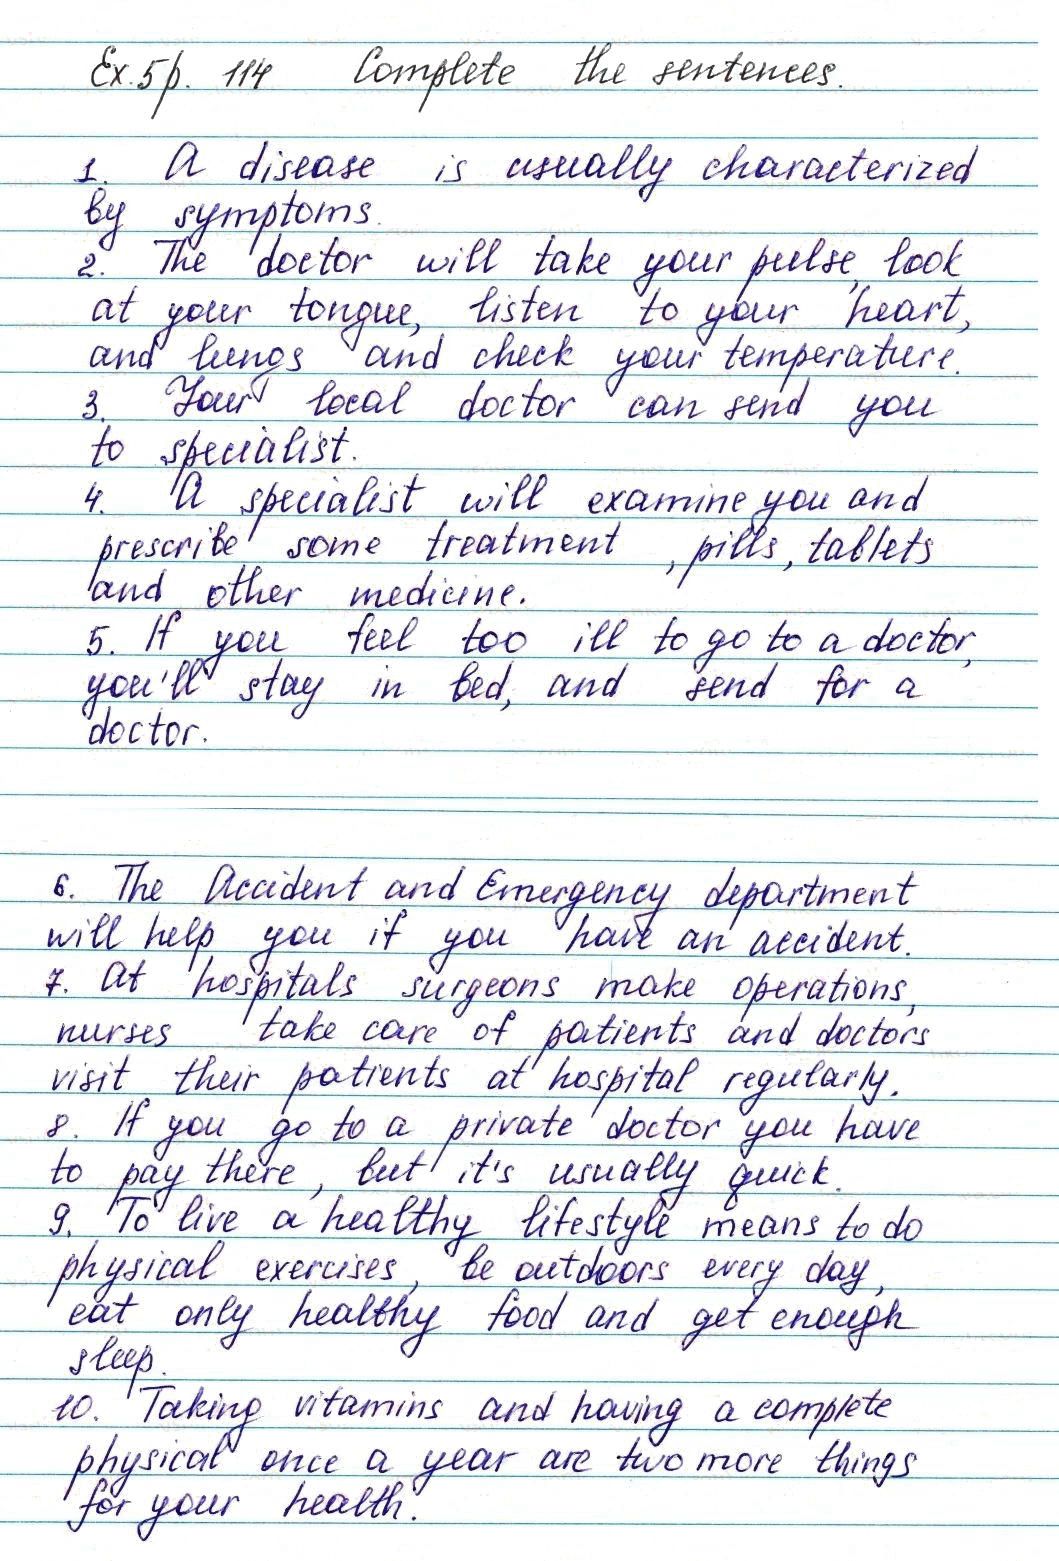 Ex.5 p. 114 Complete the sentences.
1. A disease is usually characterized
by symptoms.
2. The doctor will take your pulse, look
at your tongue, listen to your heart,
and lungs and check your temperature.
3. Your local doctor can send you
to specialist.
4. A specialist will examine you and
prescribe some treatment , pills, tablets
and other medicine.
5. If you feel too ill to go to a doctor,
you'll stay in bed, and send for a
doctor.
6. The Accident and Emergency department
will help you if you have an accident.
7. At hospitals surgeons make operations,
nurses take care of patients and doctors
visit their patients at hospital regularly.
8. If you go to a private doctor you have
to pay there, but it's usually quick.
9. To live a healthy lifestyle means to do
physical exercises, be outdoors every day,
eat only healthy food and get enough
sleep.
10. Taking vitamins and having a complete
physical once a year are two more things
for your health.